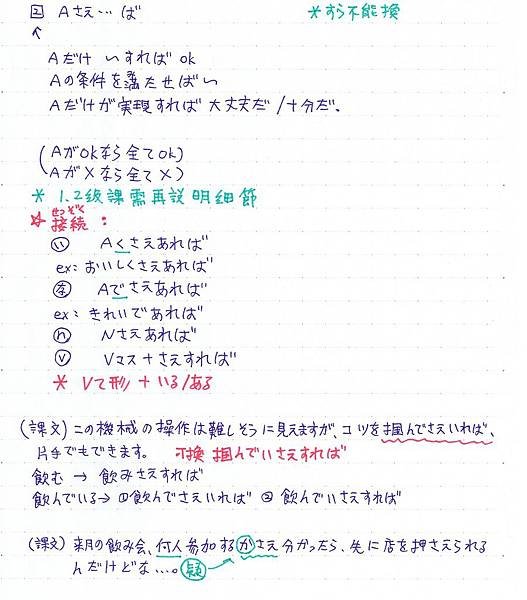 ② Aさえ…ば　＊すら不能換
Aだけ いすれば ok
Aの条件を満たせばい
Aだけが実現すれば 大丈夫だ/十分だ.
(AがOKなら全てOK)
(AがXなら全てX)
＊ 1.2級課需再説明細節
せつぞく
☆ 接続：
い Aくさえあれば
ex: おいしくさえあれば
な Aでさえあれば
ex: きれいであれば
n Nさえあれば
v Vマス+さえすれば
＊ Vて形+いる/ある
(課文) この機械の操作は難しそうに見えますが、コツを掴んでさえいれば、
片手でもできます。 可換 掴んでいさえすれば
飲む → 飲みさえすれば
飲んでいる→ ①飲んでさえいれば ② 飲んでいさえすれば
(課文) 来月の飲み会、何人参加するかさえ分かったら、先に店を押さえられる
んだけどな…。 疑